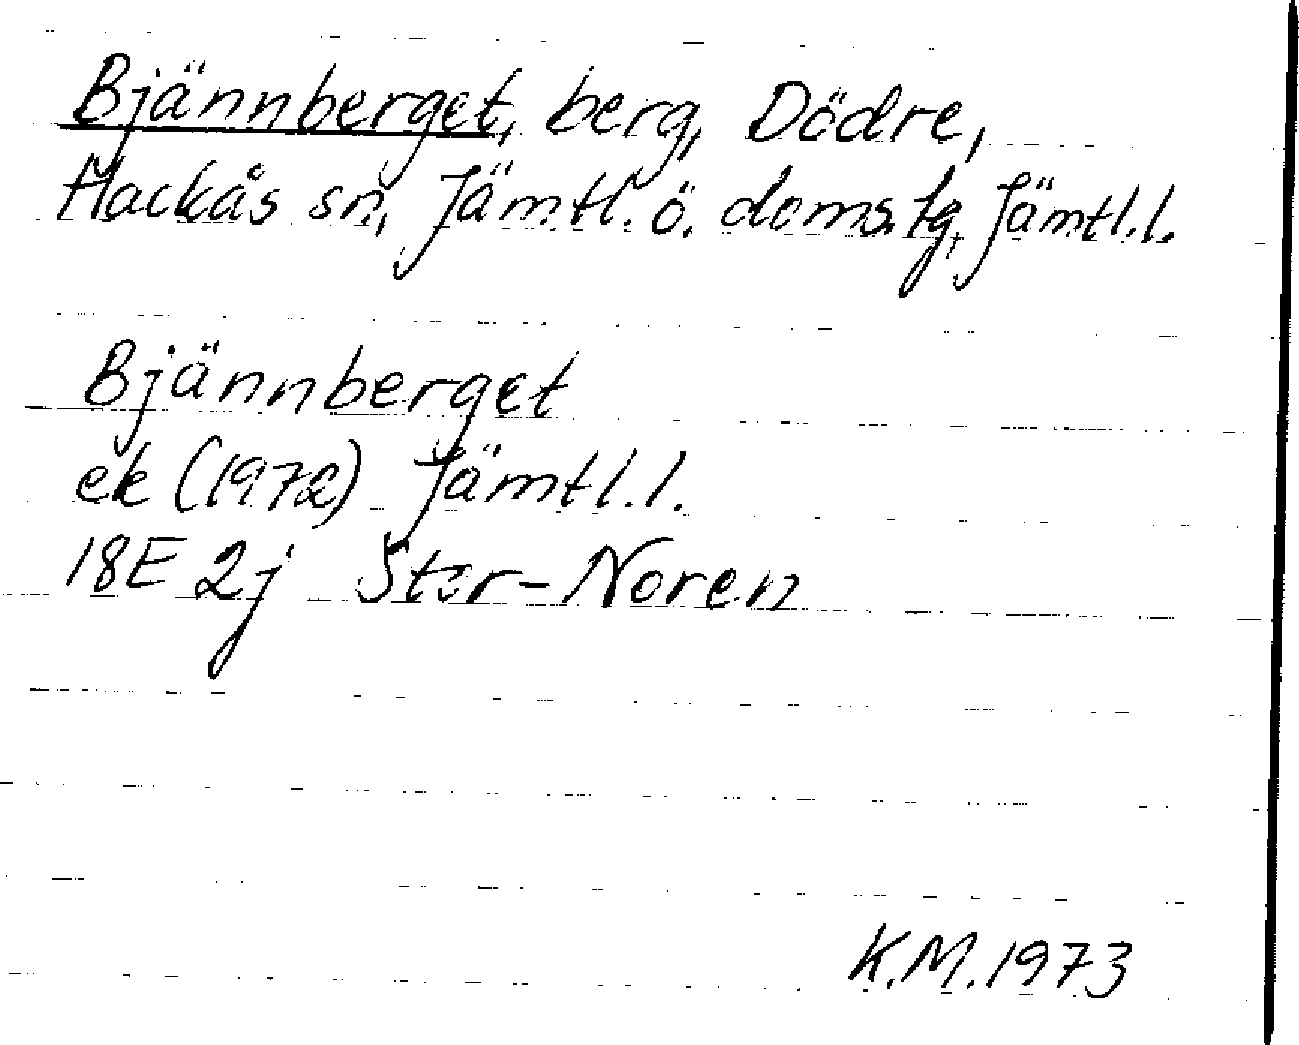 Bjännberget, berg, Dödre,
Hackås sn, Jämtl. ö. doms.tg, Jämtl.l.
Bjännberget
ek (1972) Jämtl.l.
18E 2j Stor-Noren
K.M.1973